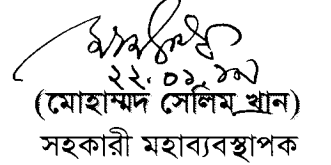 ২২.০১.১৭
(মোহাম্মদ সেলিম খান)
সহকারী মহাব্যবস্থাপক